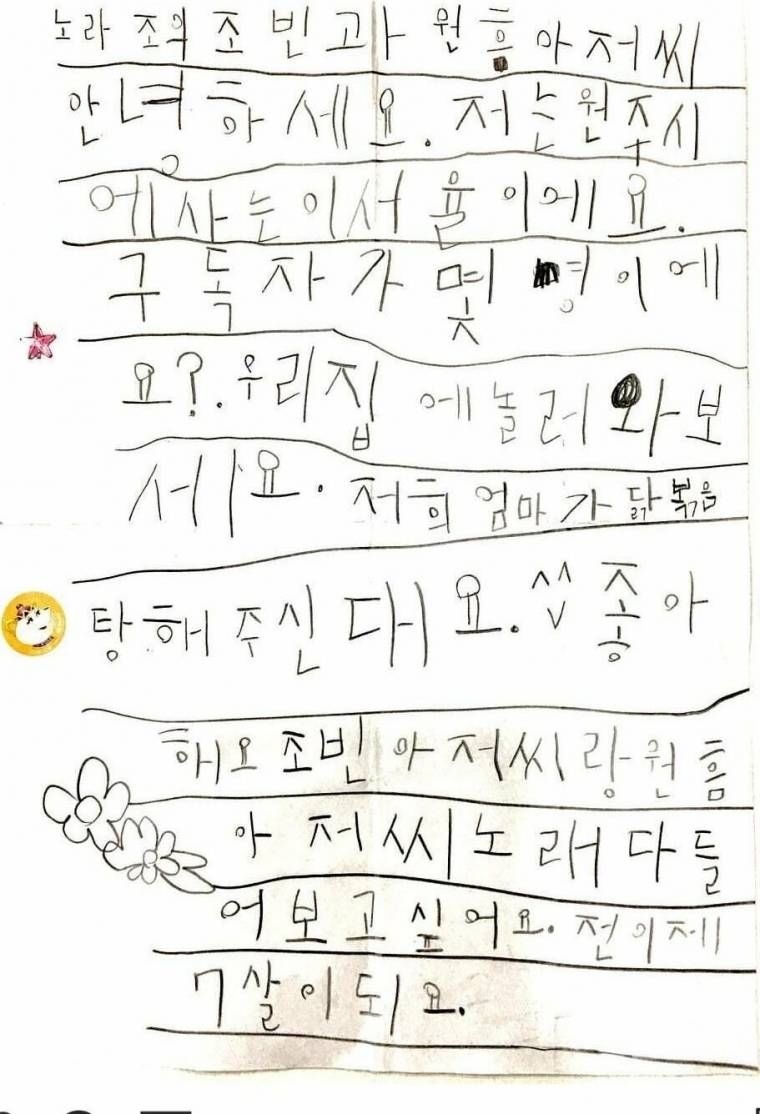 노라조의 조빈과 원흠아저씨
안녕하세요. 저는원주시
에사는이서율이에요.
구독자가 몇 명이에
요?. 우리집 에놀러와보
세요. 저희 엄마가 닭볶음
탕해주신대요. ^^ 좋아
해요조빈아저씨랑원흠
아저씨노래다들
어보고싶어요. 전이제
7살이되요.